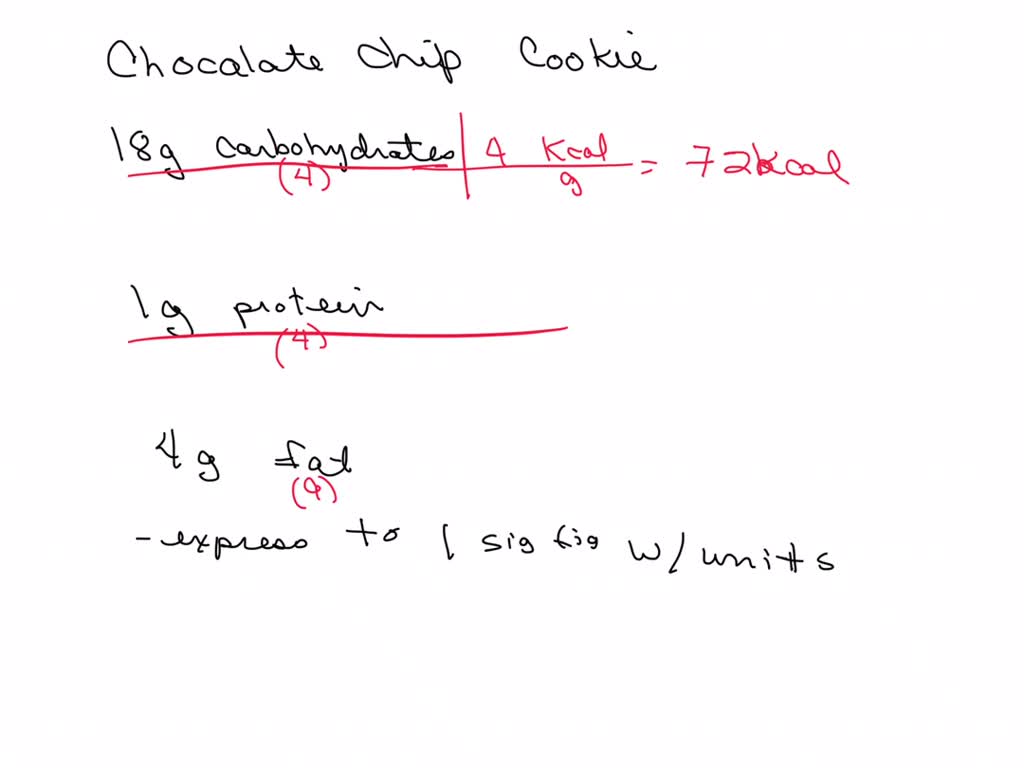 Chocalate Chip Cookie
18g carbohydrates | 4 Kcal/g = 72kcal
(4)
1g protein
(4)
4g fat
(9)
- express to 1 sig fig w/ units